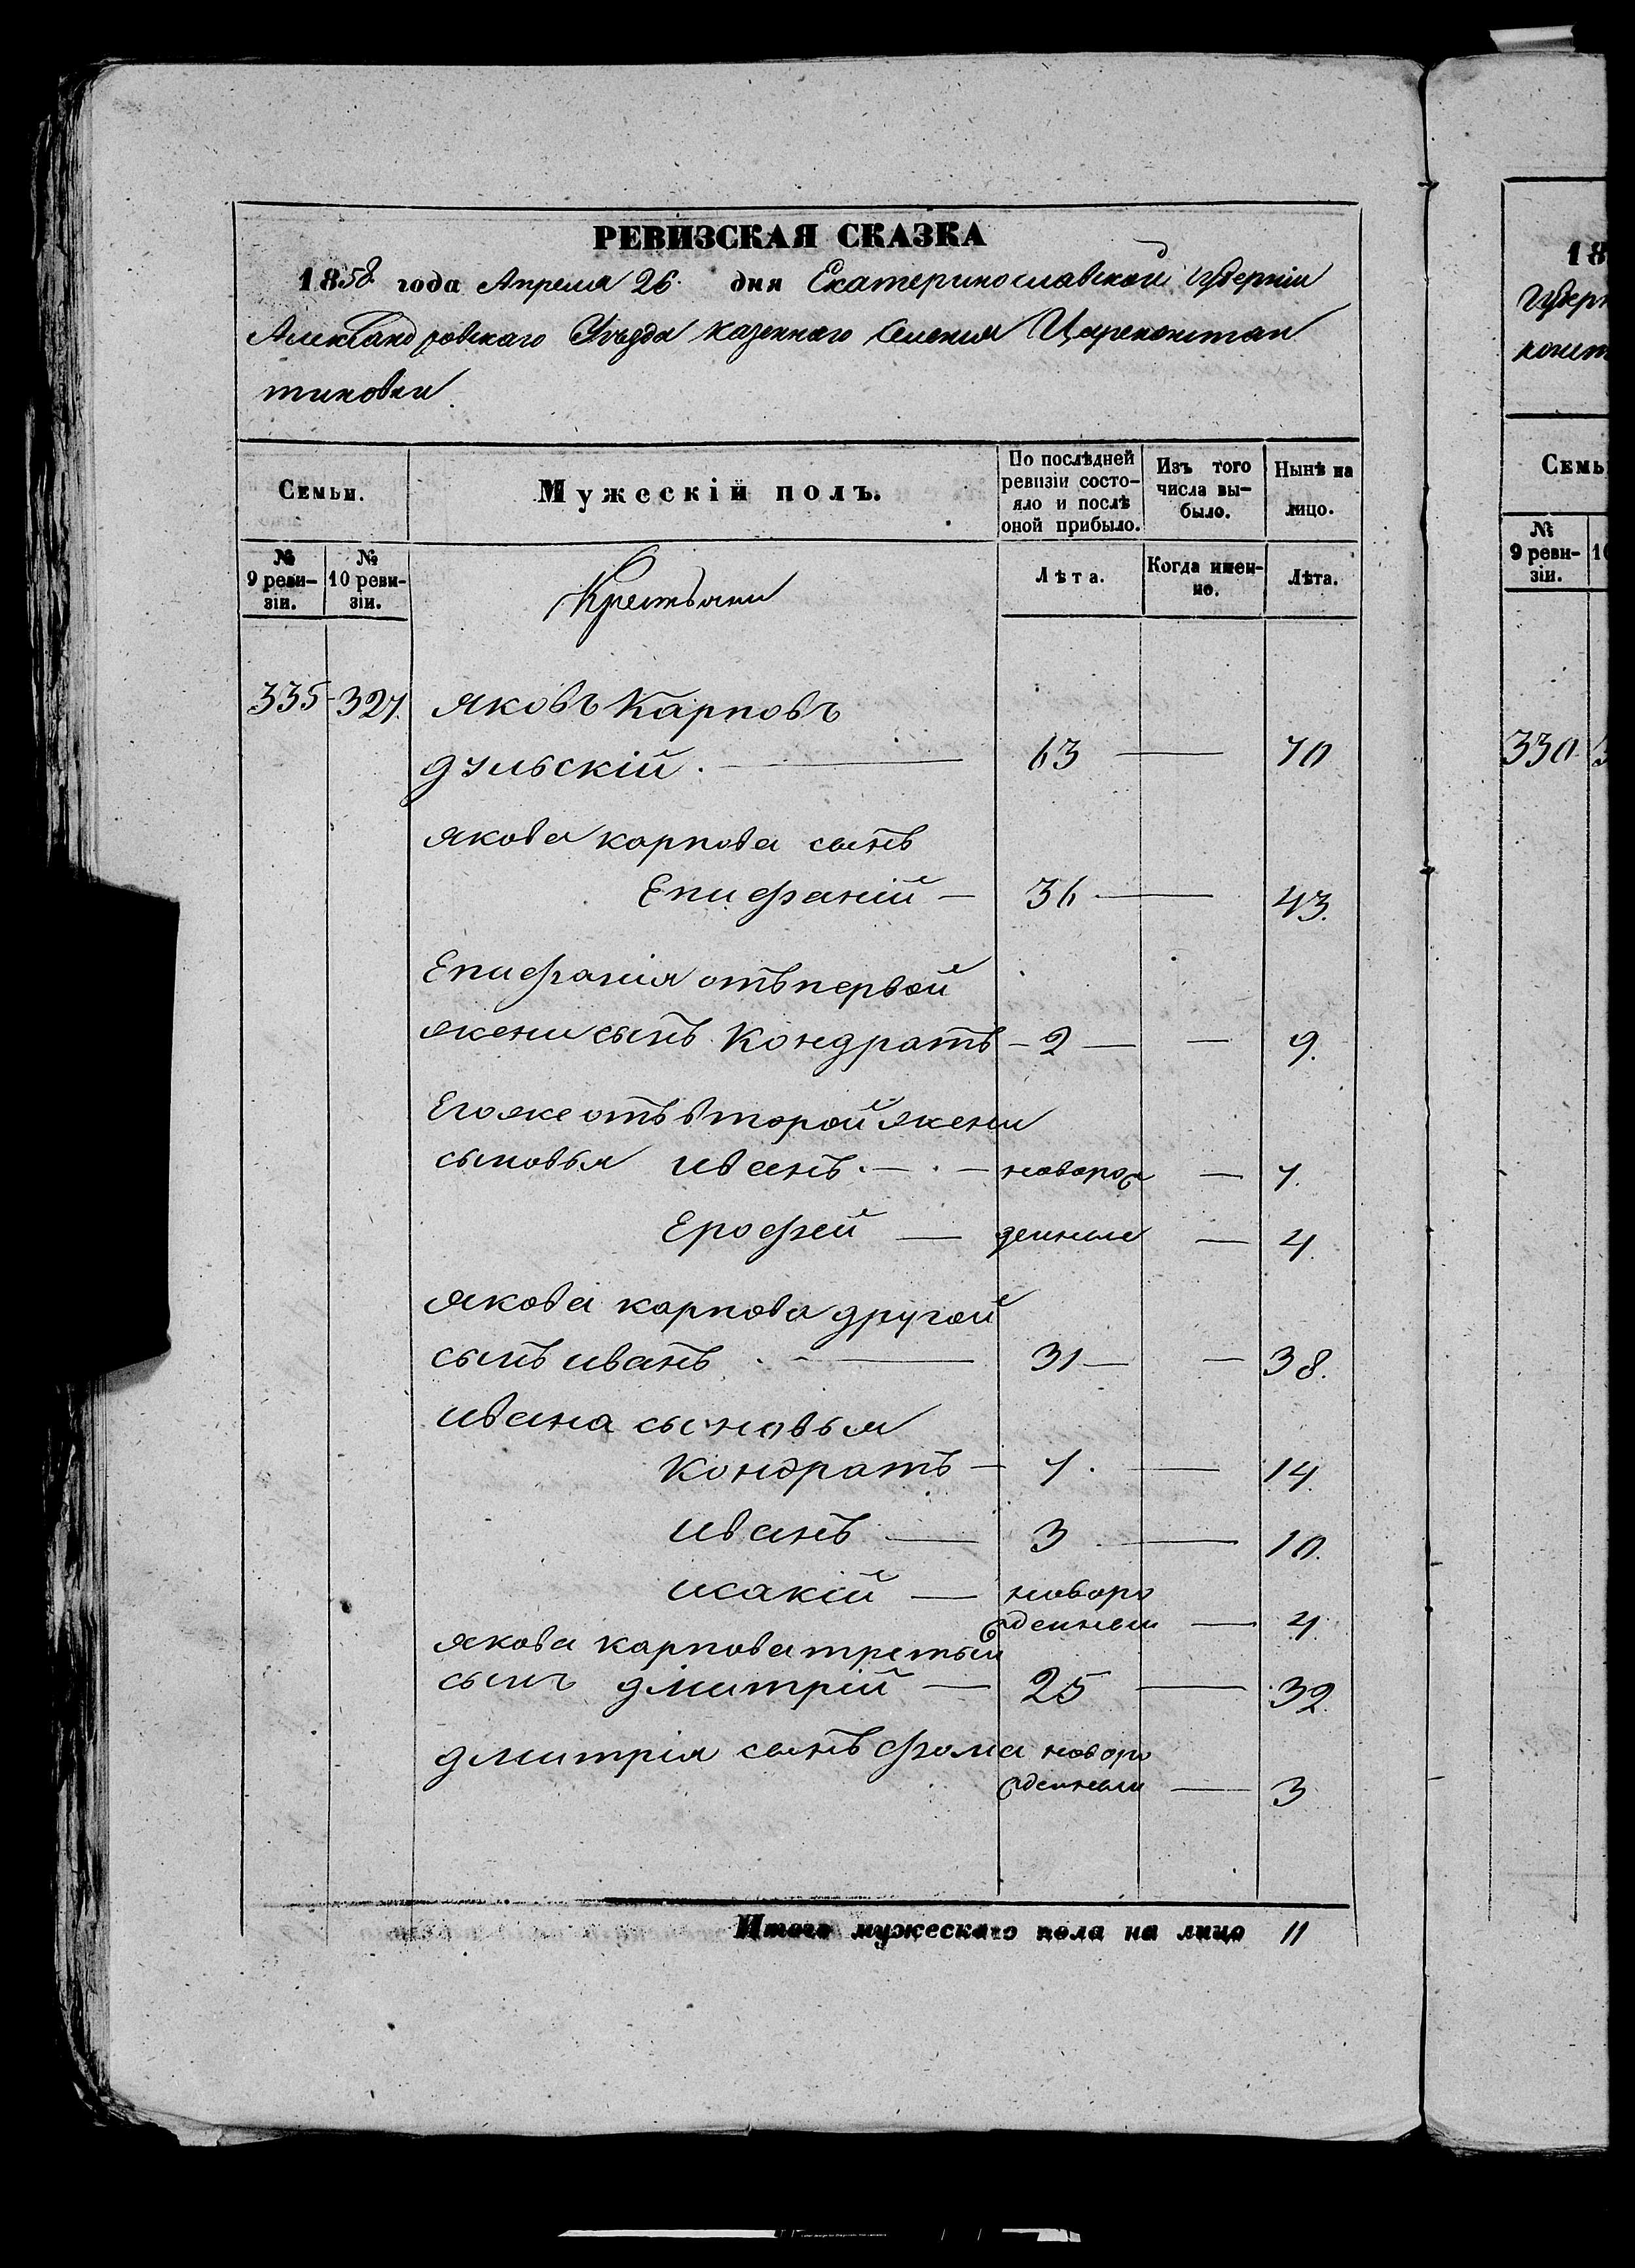 РЕВИЗСКАЯ СКАЗКА
1858 года Апреля 26. дня Екатеринославской губерніи
Александровскаго Уѣзда казеннаго селенія Цареконстан
тиновки
Семьи.
Мужескій полъ.
По послѣдней ревизіи состо-
яло и послѣ
оной прибыло.
Изъ того
числа вы-
было.
Нынѣ на
лицо.
№
9 реви-
зіи.
№
10 реви-
зіи.
Крестьяни
Лѣта.
Когда имен-
но.
Лѣта.
335 327. яковъ Карповъ
дульскій. — 63 — 70
якова карпова сынъ
Епифаній — 36 — 43.
Епифанія отъ первой
жени сынъ Кондратъ — 2 — — 9.
Его же отъ второй жени
сыновья иванъ. — . — новорож — 7.
Ерофей — денные — 4.
якова карпова другой
сынъ иванъ . — 31 — — 38.
ивана сыновья
Кондратъ — 7. — 14.
иванъ — 3 — 10.
исакій — новоро
жденный — 4.
якова карпова третьій
сынъ дмитрій — 25 — 32.
дмитрія сынъ фома новоро
жденный — 3
Итого мужескаго пола на лицо 11
18
Губерн
конст
Семь
№
9 реви-
зіи.
10
330